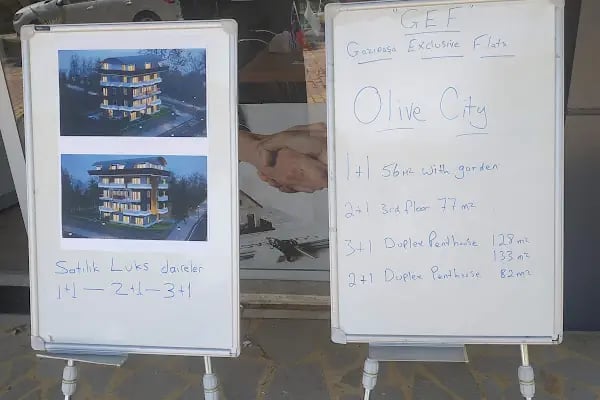 Satılık Luks daireler
1+1 — 2+1 — 3+1
"GEF"
Gazipaşa Exclusive Flats
Olive City
1+1 56m² with garden
2+1 3rd floor 77m²
3+1 Duplex Penthouse 128m²
133m²
2+1 Duplex Penthouse 82m²